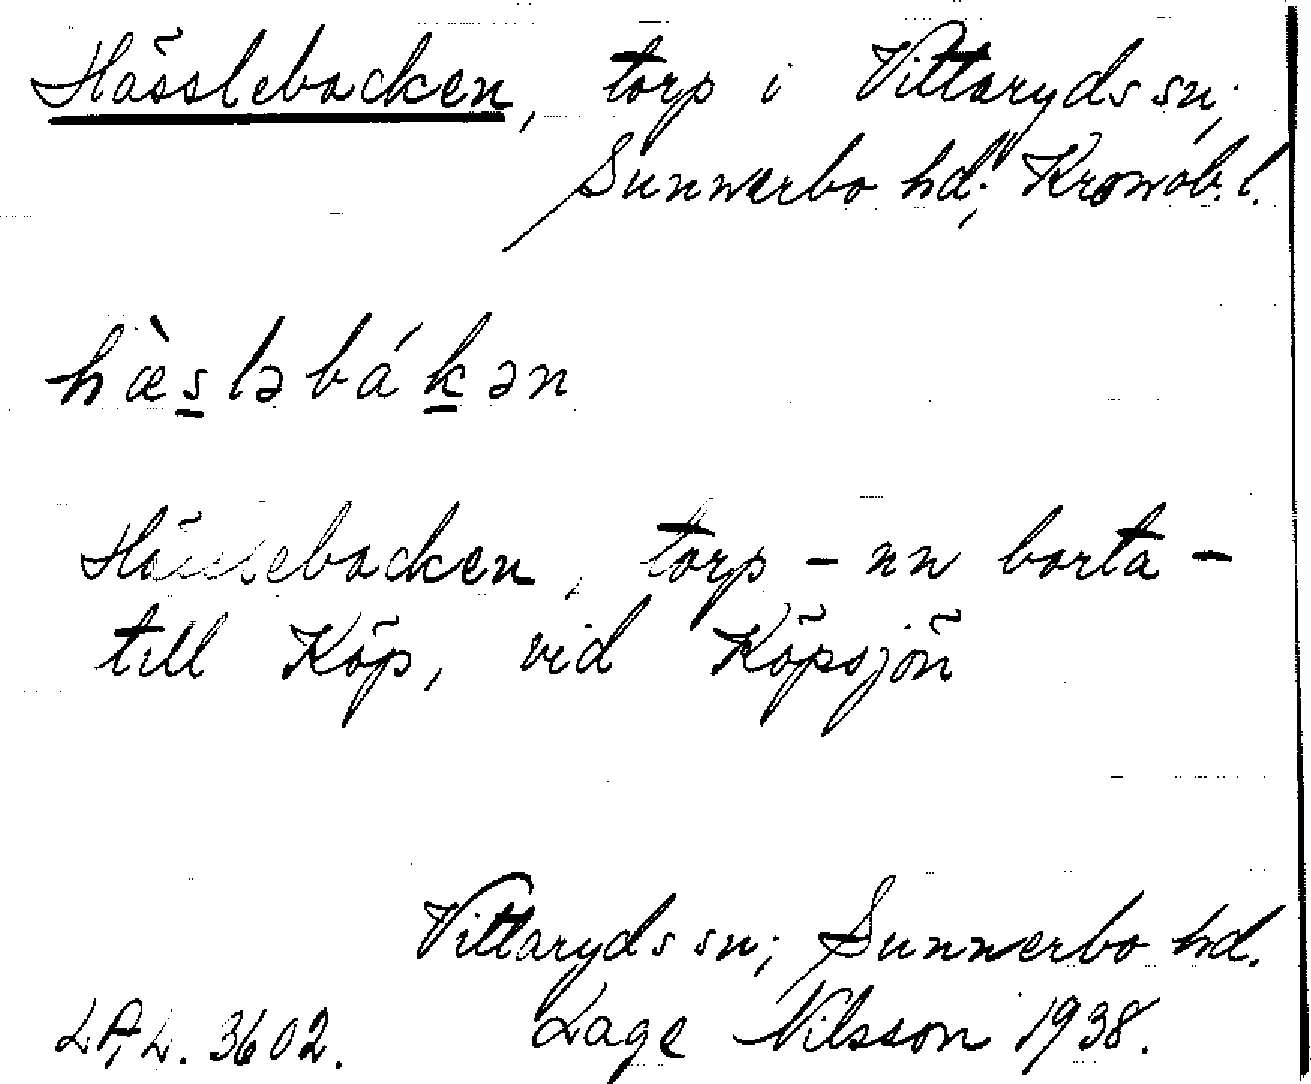 Hässlebacken, torp i Vittaryds sn;
Sunnerbo hd; Kronob. l.
hæ̀sləbákən
Hässlebacken, torp - nu borta -
till Köp, vid Köpsjön
Vittaryds sn; Sunnerbo hd.
LAL. 3602. Lage Nilsson 1938.